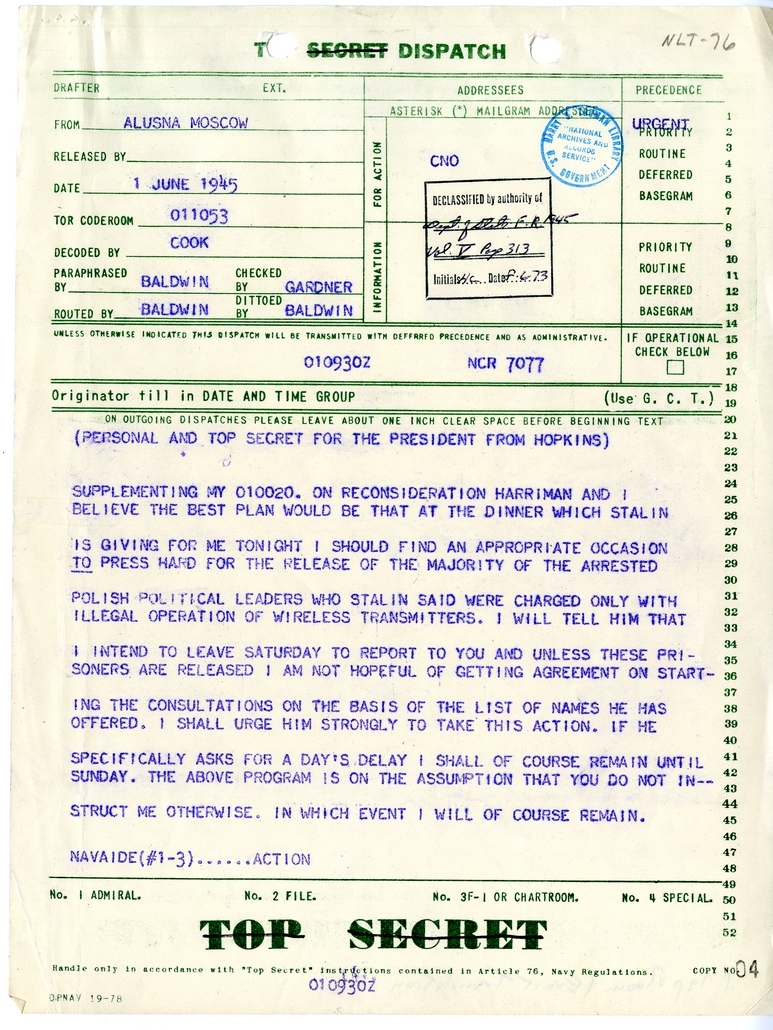 NLT-76
TOP SECRET DISPATCH
DRAFTER EXT. ADDRESSEES PRECEDENCE
ASTERISK (*) MAILGRAM ADDRESSEE
FROM ALUSNA MOSCOW
RELEASED BY
DATE 1 JUNE 1945
TOR CODEROOM 011053
DECODED BY COOK
PARAPHRASED BY BALDWIN CHECKED BY GARDNER
ROUTED BY BALDWIN DITTOED BY BALDWIN
FOR ACTION
CNO
INFORMATION
HARRY S. TRUMAN LIBRARY
"NATIONAL ARCHIVES AND RECORDS SERVICE"
U.S. GOVERNMENT
DECLASSIFIED by authority of
Dept. of State F.R. 1945
Vol. V Pap 313
Initials Date 8-6-73
URGENT
PRIORITY
ROUTINE
DEFERRED
BASEGRAM
PRIORITY
ROUTINE
DEFERRED
BASEGRAM
UNLESS OTHERWISE INDICATED THIS DISPATCH WILL BE TRANSMITTED WITH DEFERRED PRECEDENCE AND AS ADMINISTRATIVE.
010930Z NCR 7077
IF OPERATIONAL
CHECK BELOW
Originator till in DATE AND TIME GROUP (Use G. C. T.)
ON OUTGOING DISPATCHES PLEASE LEAVE ABOUT ONE INCH CLEAR SPACE BEFORE BEGINNING TEXT
(PERSONAL AND TOP SECRET FOR THE PRESIDENT FROM HOPKINS)
SUPPLEMENTING MY 010020. ON RECONSIDERATION HARRIMAN AND I
BELIEVE THE BEST PLAN WOULD BE THAT AT THE DINNER WHICH STALIN
IS GIVING FOR ME TONIGHT I SHOULD FIND AN APPROPRIATE OCCASION
TO PRESS HARD FOR THE RELEASE OF THE MAJORITY OF THE ARRESTED
POLISH POLITICAL LEADERS WHO STALIN SAID WERE CHARGED ONLY WITH
ILLEGAL OPERATION OF WIRELESS TRANSMITTERS. I WILL TELL HIM THAT
I INTEND TO LEAVE SATURDAY TO REPORT TO YOU AND UNLESS THESE PRI-
SONERS ARE RELEASED I AM NOT HOPEFUL OF GETTING AGREEMENT ON START-
ING THE CONSULTATIONS ON THE BASIS OF THE LIST OF NAMES HE HAS
OFFERED. I SHALL URGE HIM STRONGLY TO TAKE THIS ACTION. IF HE
SPECIFICALLY ASKS FOR A DAY'S DELAY I SHALL OF COURSE REMAIN UNTIL
SUNDAY. THE ABOVE PROGRAM IS ON THE ASSUMPTION THAT YOU DO NOT IN--
STRUCT ME OTHERWISE. IN WHICH EVENT I WILL OF COURSE REMAIN.
NAVAIDE(#1-3)......ACTION
1
2
3
4
5
6
7
8
9
10
11
12
13
14
15
16
17
18
19
20
21
22
23
24
25
26
27
28
29
30
31
32
33
34
35
36
37
38
39
40
41
42
43
44
45
46
47
48
49
50
51
52
No. 1 ADMIRAL. No. 2 FILE. No. 3F-1 OR CHARTROOM. No. 4 SPECIAL.
TOP SECRET
Handle only in accordance with "Top Secret" instructions contained in Article 76, Navy Regulations. COPY NO 04
010930Z
OPNAV 19-78